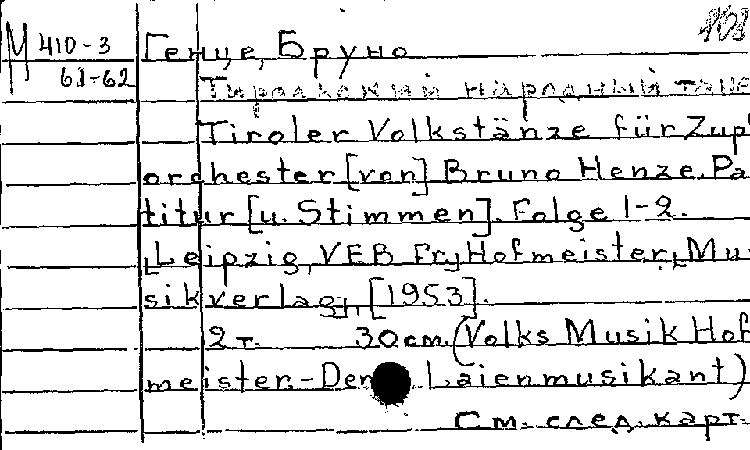 М 410-3
61-62
103
Генце, Бруно
Тирольский народный тане
Tiroler Volkstänze für Zupf
orchester [von] Bruno Henze. Pa
titur [u. Stimmen]. Folge 1-2.
[Leipzig, VEB Fr.] Hofmeister, [Mu
sikverlag], [1953].
2 т. 30 cm. (Volks Musik Hof
meister.- Der Laienmusikant)
См. след. карт.